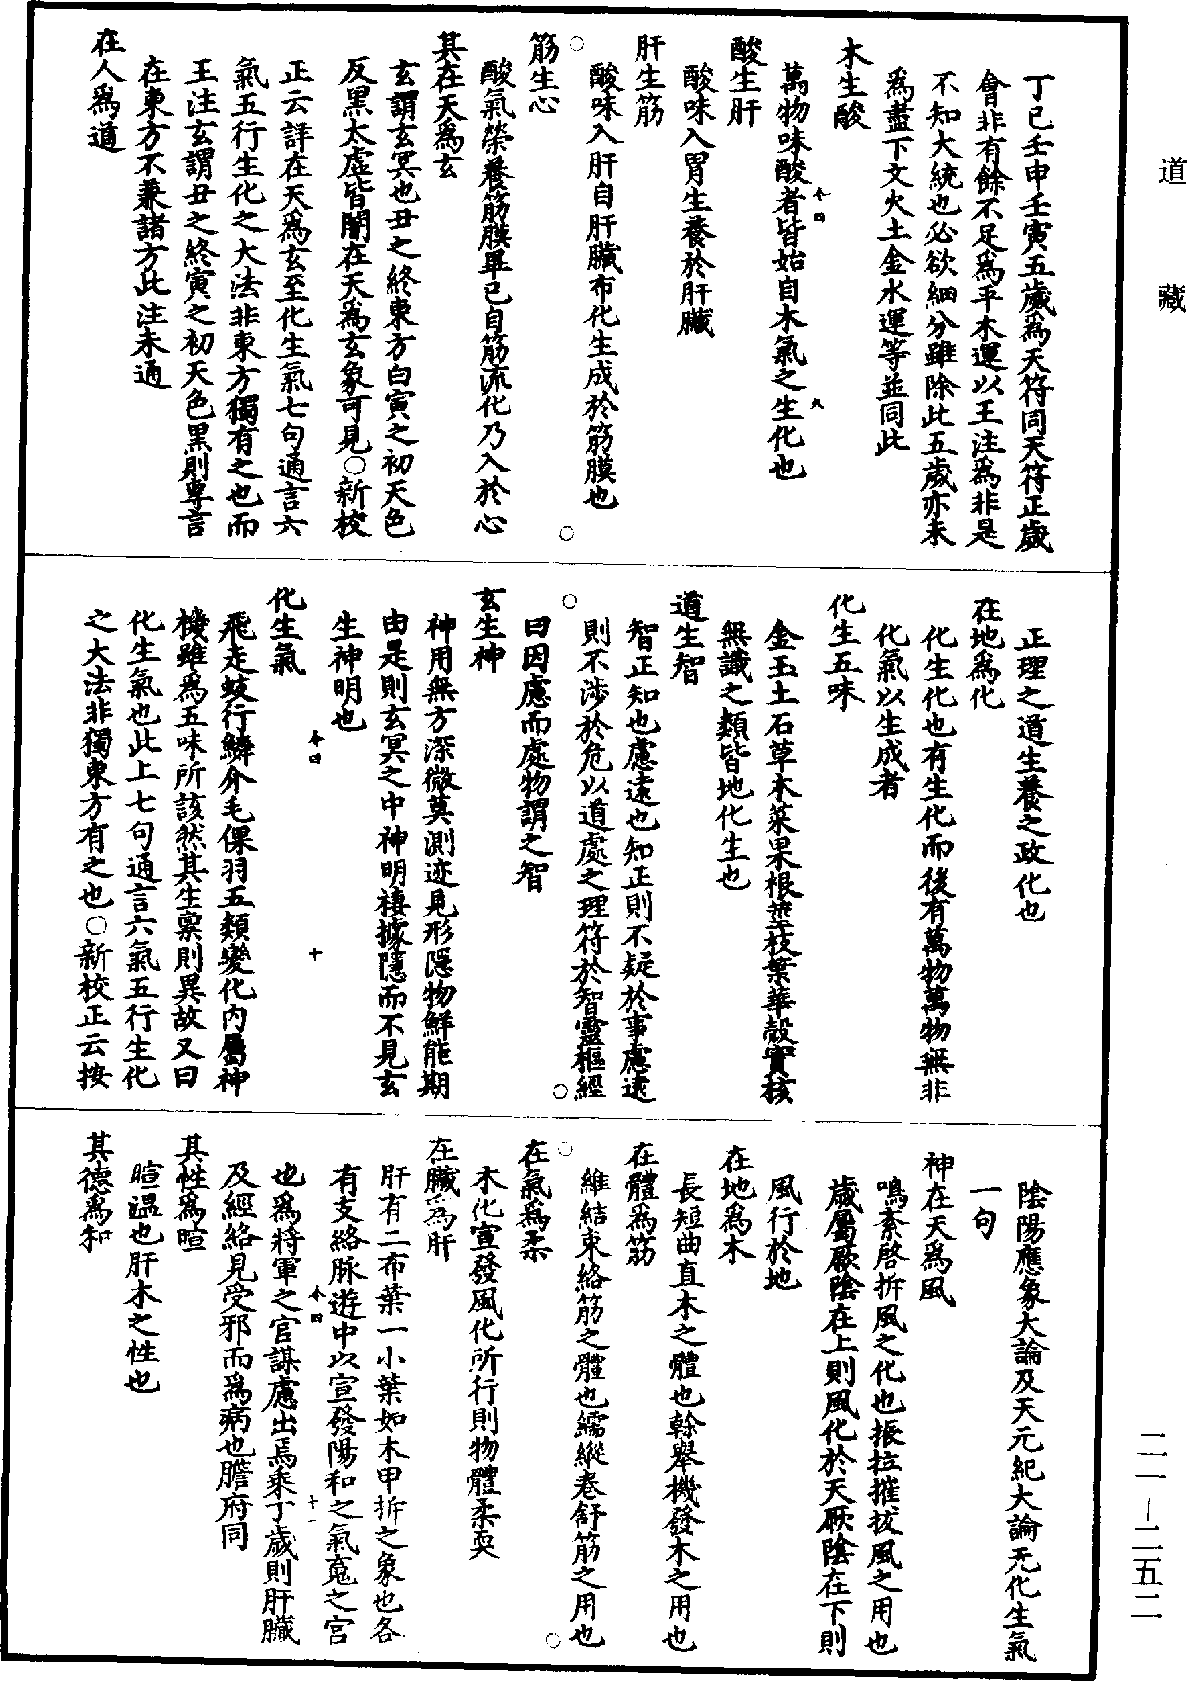 道藏
丁巳壬申壬寅五歲爲天符同天符正歲
會非有餘不足爲平木運以王注爲非是
不知大統也必欲細分雖除此五歲亦未
爲盡下文火土金水運等並同此
木生酸
萬物味酸者皆始自木氣之生化也
酸生肝
酸味入胃生養於肝臟
肝生筋
酸味入肝自肝臟布化生成於筋膜也
筋生心
酸氣榮養筋膜畢已自筋流化乃入於心
其在天爲玄
玄謂玄冥也丑之終東方白寅之初天色
反黑太虛皆闇在天爲玄象可見○新校
正云詳在天爲玄至化生氣七句通言六
氣五行生化之大法非東方獨有之也而
王注玄謂丑之終寅之初天色黑則專言
在東方不兼諸方此注未通
在人爲道
正理之道生養之政化也
在地爲化
化生化也有生化而後有萬物萬物無非
化氣以生成者
化生五味
金玉土石草木菜果根莖枝葉華殼實核
無識之類皆地化生也
道生智
智正知也慮遠也知正則不疑於事慮遠
則不涉於危以道處之理符於智靈樞經
曰因慮而處物謂之智
玄生神
神用無方深微莫測迹見形隱物鮮能期
由是則玄冥之中神明棲據隱而不見玄
生神明也
化生氣
飛走蚑行鱗介毛倮羽五類變化內屬神
機雖爲五味所該然其生稟則異故又曰
化生氣也此上七句通言六氣五行生化
之大法非獨東方有之也○新校正云按
陰陽應象大論及天元紀大論无化生氣
一句
神在天爲風
鳴紊啓拆風之化也振拉摧拔風之用也
歲屬厥陰在上則風化於天厥陰在下則
風行於地
在地爲木
長短曲直木之體也幹舉機發木之用也
在體爲筋
維結束絡筋之體也繻縱卷舒筋之用也
在氣爲柔
木化宣發風化所行則物體柔耎
在臟爲肝
肝有二布葉一小葉如木甲拆之象也各
有支絡脉遊中以宣發陽和之氣䰟之宮
也爲將軍之官謀慮出焉乘丁歲則肝臟
及經絡見受邪而爲病也膽府同
其性爲暄
暄温也肝木之性也
其德爲和
二一—二五二